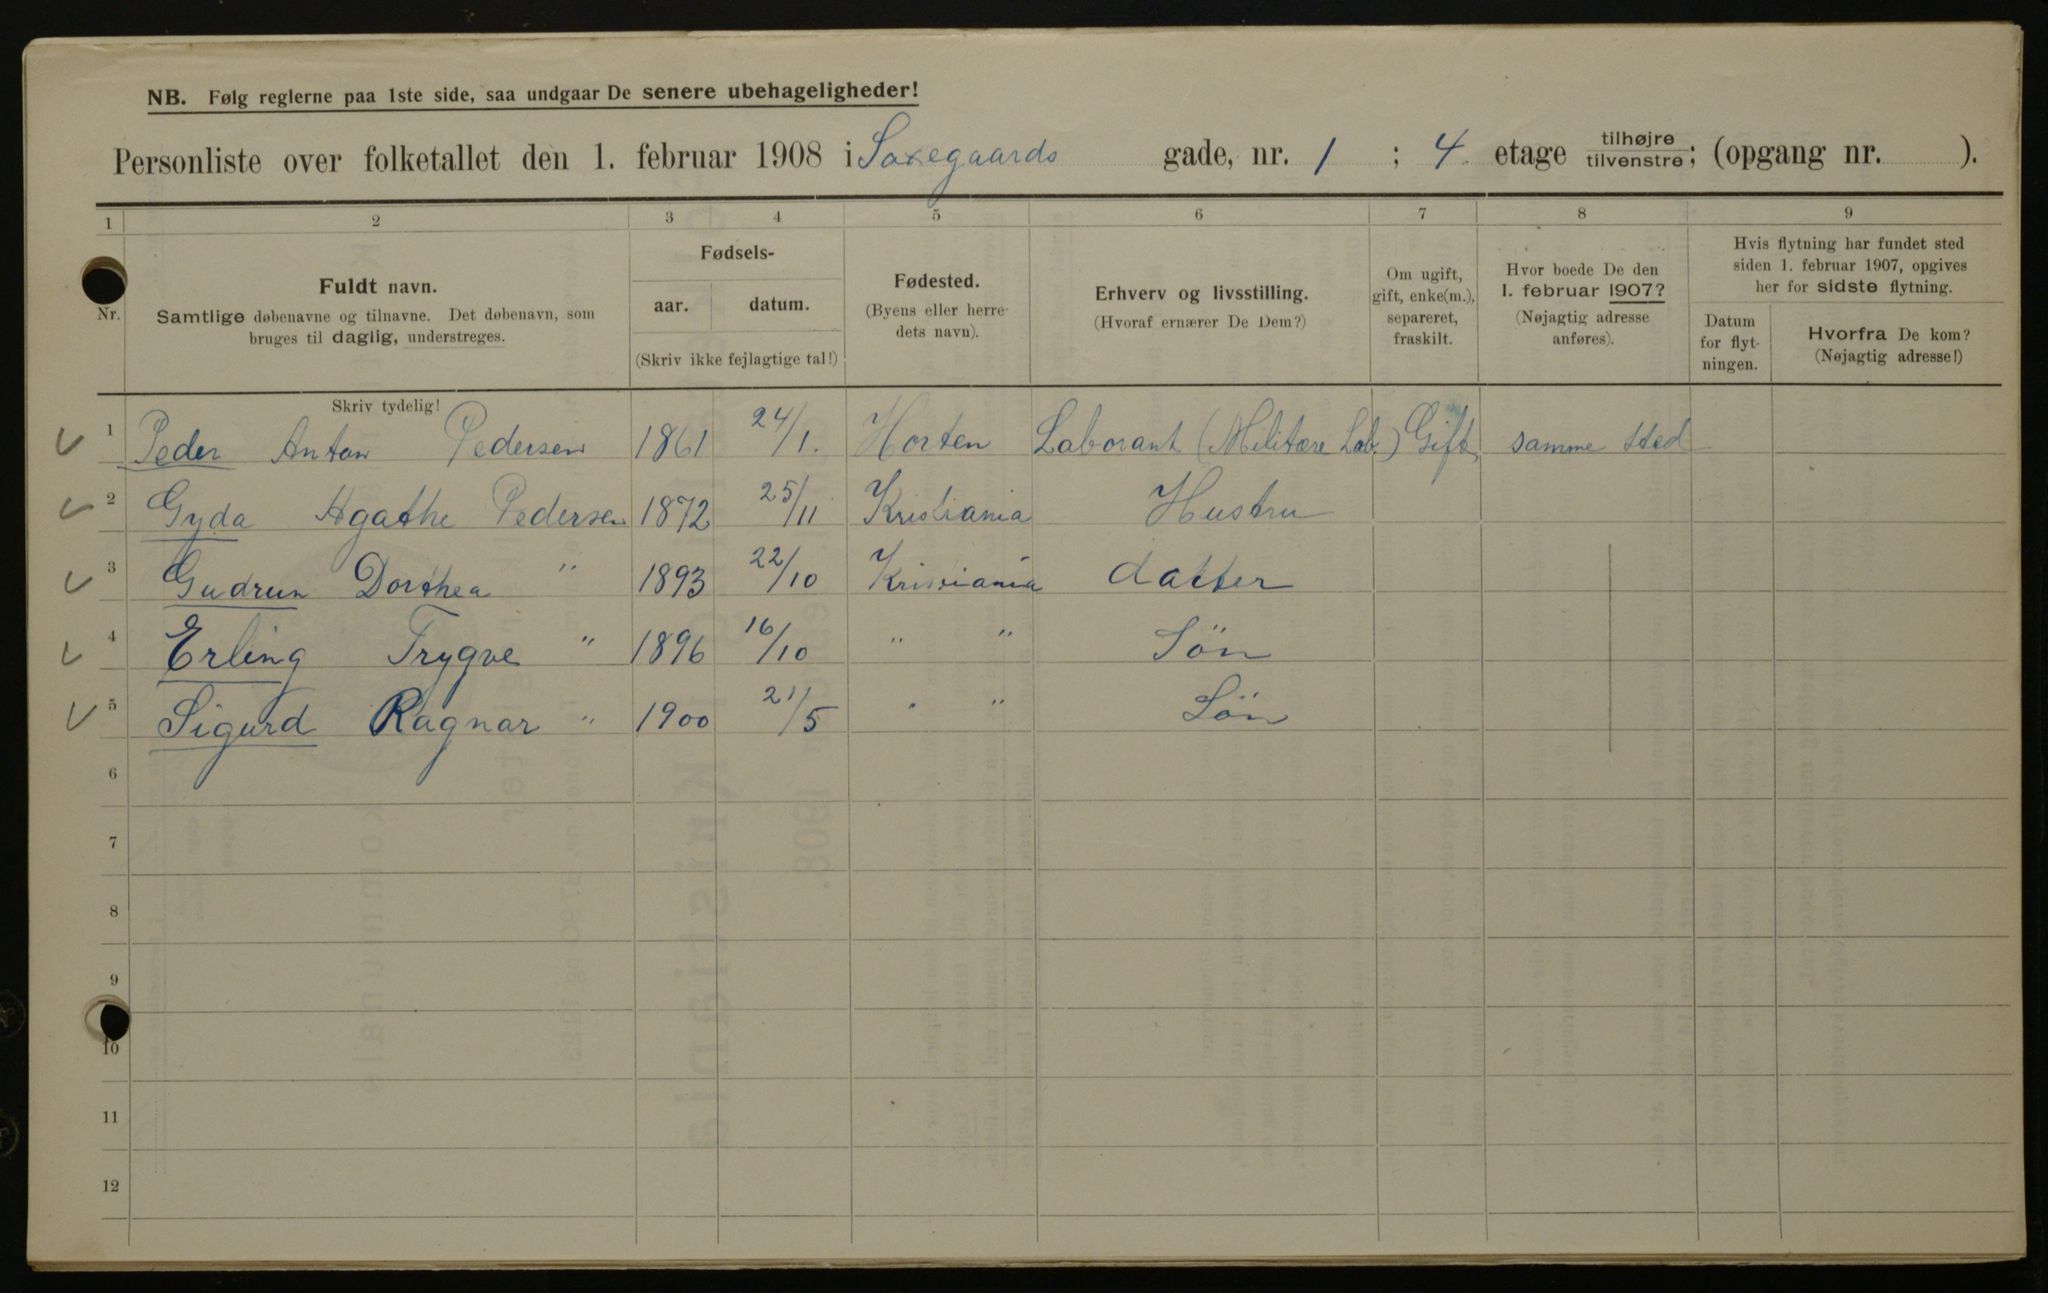 NB. Følg reglerne paa 1ste side, saa undgaar De senere ubehageligheder!
Personliste over folketallet den 1. februar 1908 i Saxegaards gade, nr. 1 ; 4. etage tilhøjre tilvenstre; (opgang nr. ).
1 2 3 4 5 6 7 8 9
Nr.
Fuldt navn.
Samtlige døbenavne og tilnavne. Det døbenavn, som
bruges til daglig, understreges.
Fødsels-
aar. datum.
(Skriv ikke fejlagtige tal!)
Fødested.
(Byens eller herre-
dets navn).
Erhverv og livsstilling.
(Hvoraf ernærer De Dem?)
Om ugift,
gift, enke(m.),
separeret,
fraskilt.
Hvor boede De den
1. februar 1907?
(Nøjagtig adresse
anføres).
Hvis flytning har fundet sted
siden 1. februar 1907, opgives
her for sidste flytning.
Datum
for flyt-
ningen.
Hvorfra De kom?
(Nøjagtig adresse!)
Skriv tydelig!
1 Peder Anton Pedersen 1861 24/1. Horten Laborant (Militære Lab.) Gift samme sted
2 Gyda Agathe Pedersen 1872 25/11 Kristiania Hustru
3 Gudrun Dorthea " 1893 22/10 Kristiania datter
4 Erling Trygve " 1896 16/10 " " Sön
5 Sigurd Ragnar " 1900 21/5 " " Sön
6
7
8
9
10
11
12